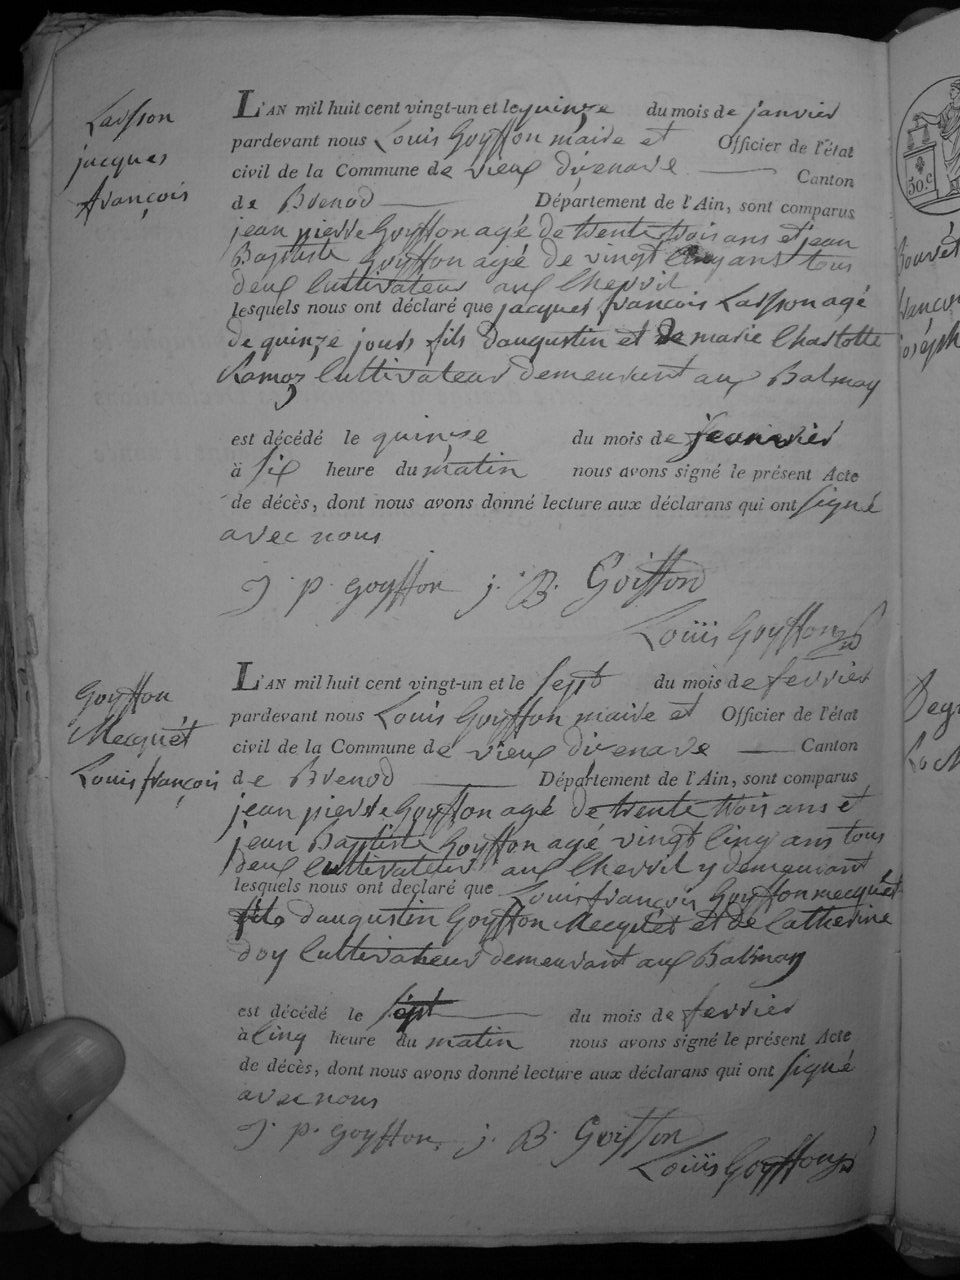 Lasson
jacques
françois
L'AN mil huit cent vingt-un et le quinze du mois de janvier
pardevant nous Louis Goyffon maire et Officier de l'état
civil de la Commune de vieux dizenave Canton
de Brenod Département de l'Ain, sont comparus
jean pierre Goyffon agé de trente trois ans et jean
Baptiste Goyffon agé de vingt cinq ans tous
deux Cultivateur aux Chevril
lesquels nous ont déclaré que jacques françois Lasson agé
de quinze jours fils d'augustin et de marie Charlotte
Ramoz Cultivateur demeurant aux Balmay
est décédé le quinze du mois de jeanvier
à six heure du matin nous avons signé le présent Acte
de décès, dont nous avons donné lecture aux déclarans qui ont signé
avec nous
J. P. goyffon j. B. Goiffon
Louis Goyffon
Goyffon
Mecquét
Louis françois
L'AN mil huit cent vingt-un et le sept du mois de fevrier
pardevant nous Louis Goyffon maire et Officier de l'état
civil de la Commune de vieux dizenave Canton
de Brenod Département de l'Ain, sont comparus
jean pierre Goyffon agé de trente trois ans et
jean Baptiste Goyffon agé vingt cinq ans tous
deux Cultivateur aux Chevril y demeurant
lesquels nous ont déclaré que Louis françois Goyffon mecquét
fils d'augustin Goyffon Mecquét et de Catherine
doy Cultivateur demeurant aux Balmay
est décédé le sept du mois de fevrier
à cinq heure du matin nous avons signé le présent Acte
de décès, dont nous avons donné lecture aux déclarans qui ont signé
avec nous
J. P. goyffon j. B. Goiffon
Louis Goyffon
50.c